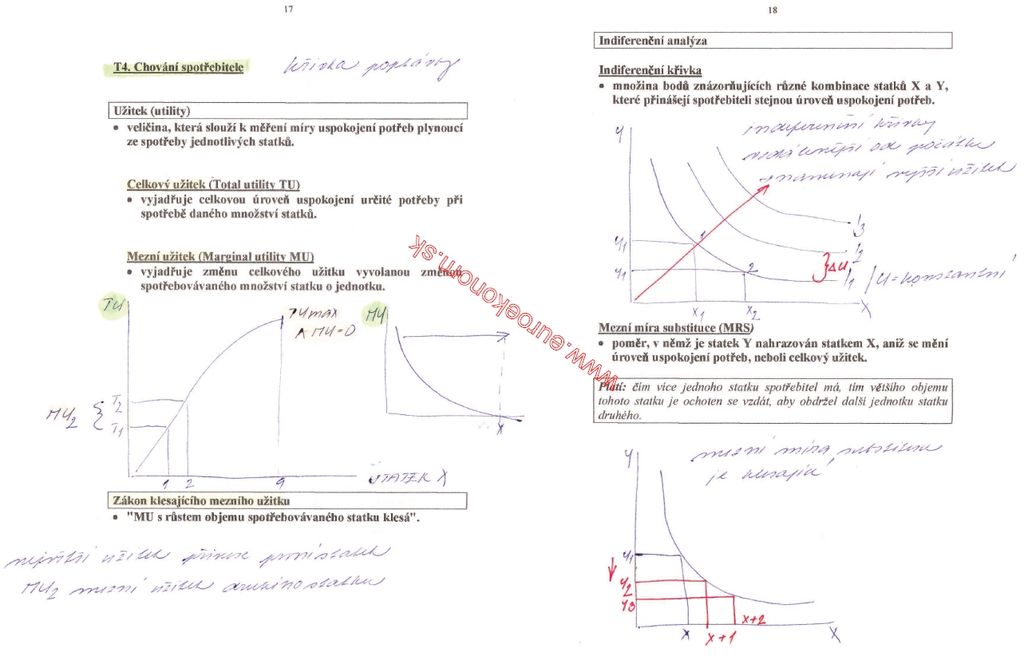 17
T4. Chování spotřebitele
křivka poptávky
Užitek (utility)
• veličina, která slouží k měření míry uspokojení potřeb plynoucí
ze spotřeby jednotlivých statků.
Celkový užitek (Total utility TU)
• vyjadřuje celkovou úroveň uspokojení určité potřeby při
spotřebě daného množství statků.
Mezní užitek (Marginal utility MU)
• vyjadřuje změnu celkového užitku vyvolanou změnou
spotřebovávaného množství statku o jednotku.
TU
TU max
∧ MU=0
MU
MU2
T2
T1
1 2 9 STATEK X
X
Zákon klesajícího mezního užitku
• "MU s růstem objemu spotřebovávaného statku klesá".
největší užitek přinese první statek
MU2 mezní užitek druhého statku
www.euroekonom.sk
18
Indiferenční analýza
Indiferenční křivka
• množina bodů znázorňujících různé kombinace statků X a Y,
které přinášejí spotřebiteli stejnou úroveň uspokojení potřeb.
Y
indiferenční křivky
vzdálenější od počátku
znamenají vyšší užitek
Y1
1
I3
I2
Y1
2
ΔU
I1
/U=konstantní
X1 X2 X
Mezní míra substituce (MRS)
• poměr, v němž je statek Y nahrazován statkem X, aniž se mění
úroveň uspokojení potřeb, neboli celkový užitek.
Platí: čím více jednoho statku spotřebitel má, tím většího objemu
tohoto statku je ochoten se vzdát, aby obdržel další jednotku statku
druhého.
Y
mezní míra substituce
je klesající
Y1
Y2
Y3
X X+1 X+2 X